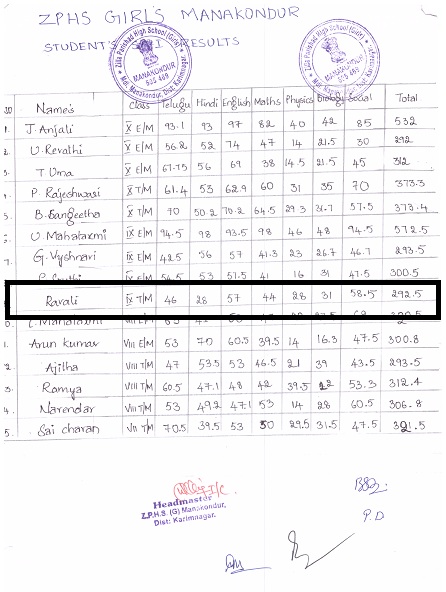 ZPHS GIRLS MANAKONDUR
STUDENT'S RESULTS
Name's Class Telugu Hindi English Maths Physics Biology Social Total
1. J. Anjali X E/M 93.1 93 97 82 40 42 85 532
V. Revathi X E/M 56.2 52 74 47 14 21.5 30 292
T. Uma X E/M 67.75 56 69 38 14.5 21.5 45 312
P. Rajeshwari X T/M 61.4 53 62.9 60 31 35 70 373.3
B. Sangeetha X T/M 70 50.2 70.2 64.5 29.3 31.7 57.5 373.4
V. Mahalaxmi IX E/M 94.5 98 93.5 98 46 48 94.5 572.5
G. Vyshnavi IX E/M 42.5 56 57 41.3 23 26.7 46.7 293.5
54.5 53 57.5 41 16 31 47.5 300.5
Ravali IX T/M 46 28 57 44 28 31 58.5 292.5
Mahalaxmi
Arun kumar VIII E/M 53 70 60.5 39.5 14 16.3 47.5 300.8
2. Ajilha VIII T/M 47 53.5 53 46.5 21 39 43.5 293.5
3. Ramya VIII T/M 60.5 47.1 48 42 39.5 22 53.3 312.4
4. Narendar VIII T/M 53 49.2 47.1 53 14 28 60.5 306.8
5. Sai charan VII T/M 70.5 39.5 53 50 29.5 31.5 47.5 321.5
I/C.
Headmaster
Z.P.H.S (G) Manakondur,
Dist: Karimnagar.
P.D